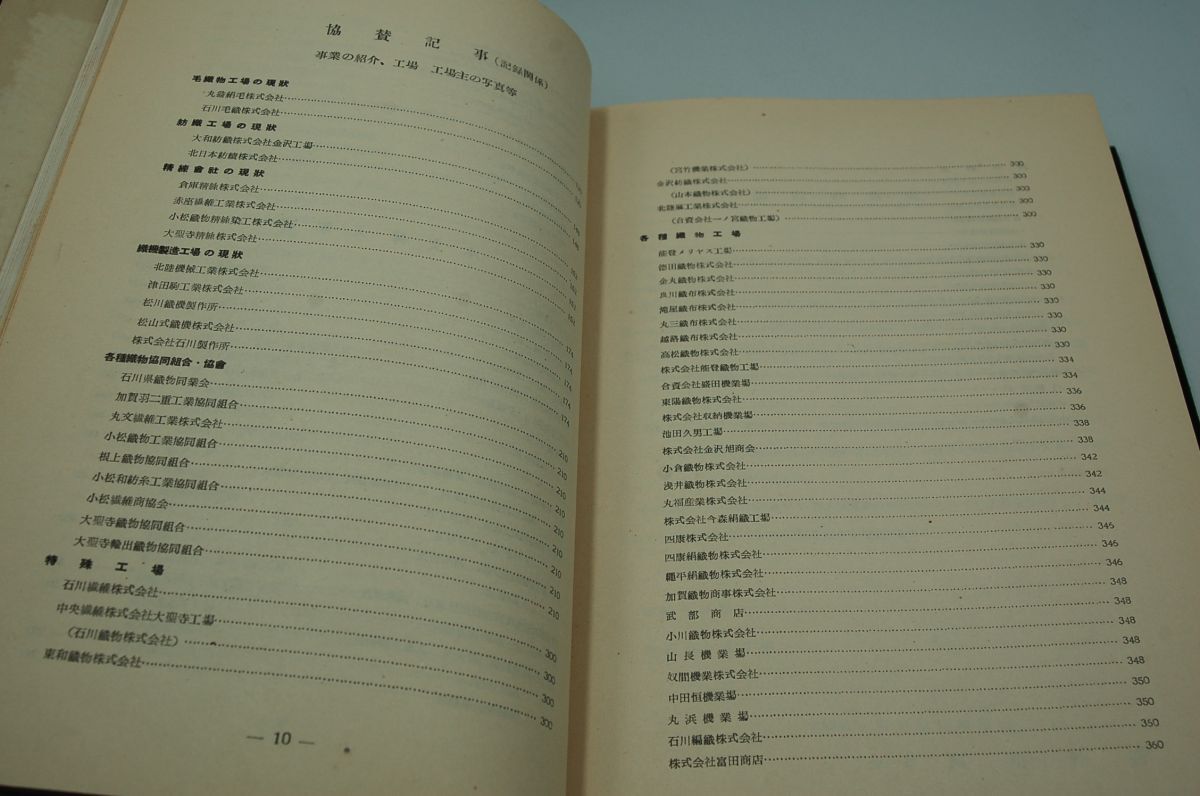 協賛記事(記録関係)
事業の紹介、工場 工場主の写真等
毛織物工場の現狀
丸益絹毛株式会社
石川毛織株式会社
紡織工場の現狀
大和紡績株式会社金沢工場
北日本紡績株式会社
精練會社の現狀
倉庫精練株式会社
赤座繊維工業株式会社
小松織物精練染工株式会社
大聖寺精練株式会社
織機製造工場の現狀
北陸機械工業株式会社
津田駒工業株式会社
松川織機製作所
松山式織機株式会社
株式会社石川製作所 174
各種織物協同組合・協會
石川県織物同業会 174
加賀羽二重工業協同組合 174
丸文繊維工業株式会社 210
小松織物工業協同組合 210
根上織物協同組合 210
小松和紡糸工業協同組合 210
小松繊維商協会 210
大聖寺織物協同組合 210
大聖寺輸出織物協同組合 210
特殊工場
石川繊維株式会社 300
中央繊維株式会社大聖寺工場
(石川織物株式会社) 300
東和織物株式会社 300
― 10 ―
(宮竹機業株式会社) 300
金沢紡織株式会社 300
(山本織物株式会社) 300
北陸麻工業株式会社 300
(合資会社一ノ宮織物工場) 300
各種織物工場
能登メリヤス工場 330
徳田織物株式会社 330
金丸織物株式会社 330
良川織布株式会社 330
滝尾織布株式会社 330
丸三織布株式会社 330
越路織布株式会社 330
高松織物株式会社 330
株式会社能登織物工場 334
合資会社盛田機業場 334
東陽織物株式会社 336
株式会社収納機業場 336
池田久男工場 338
株式会社金沢旭商会 338
小倉織物株式会社 342
浅井織物株式会社 342
丸福産業株式会社 344
株式会社今森絹織工場 344
四康株式会社 346
四康絹織物株式会社 346
縄平絹織物株式会社 346
加賀織物商事株式会社 348
武部商店 348
小川織物株式会社 348
山長機業場 348
奴間機業株式会社 348
中田恒機業場 350
丸浜機業場 350
石川編織株式会社 350
株式会社富田商店 360